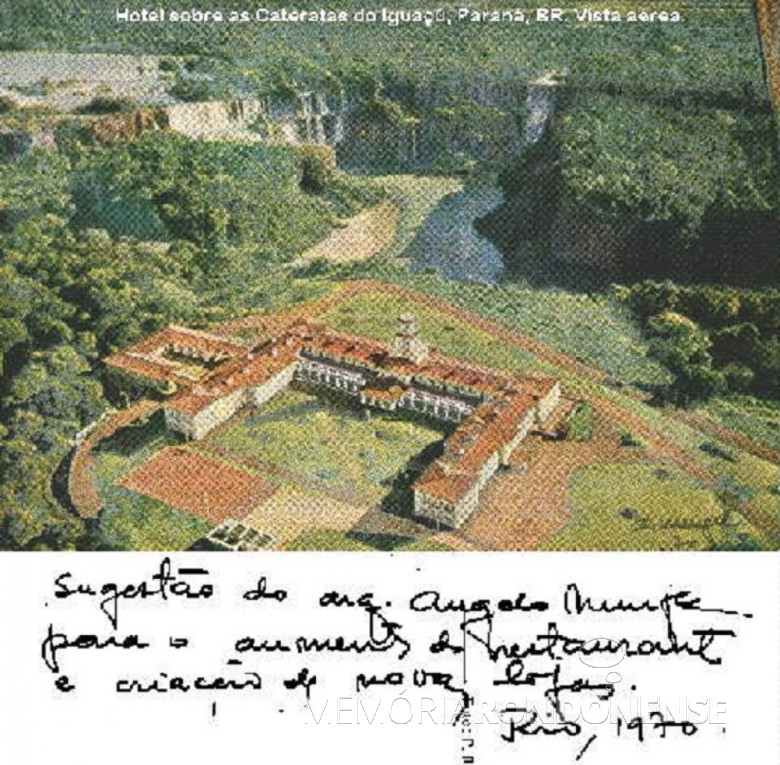 Hotel sobre as Cataratas do Iguaçú, Paraná, BR. Vista aérea.
Sugestão do arq. Angelo Murgel
para o aumento do restaurant
e criação de novas lojas.
MEMÓRIARONDONENSE
Rio, 1970